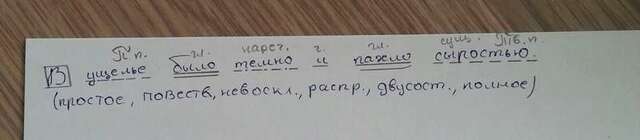 П п. гл. нареч. г. гл. сущ. Тв. п.
В ущелье было темно и пахло сыростью.
(простое, повеств, невоскл., распр., двусост., полное)